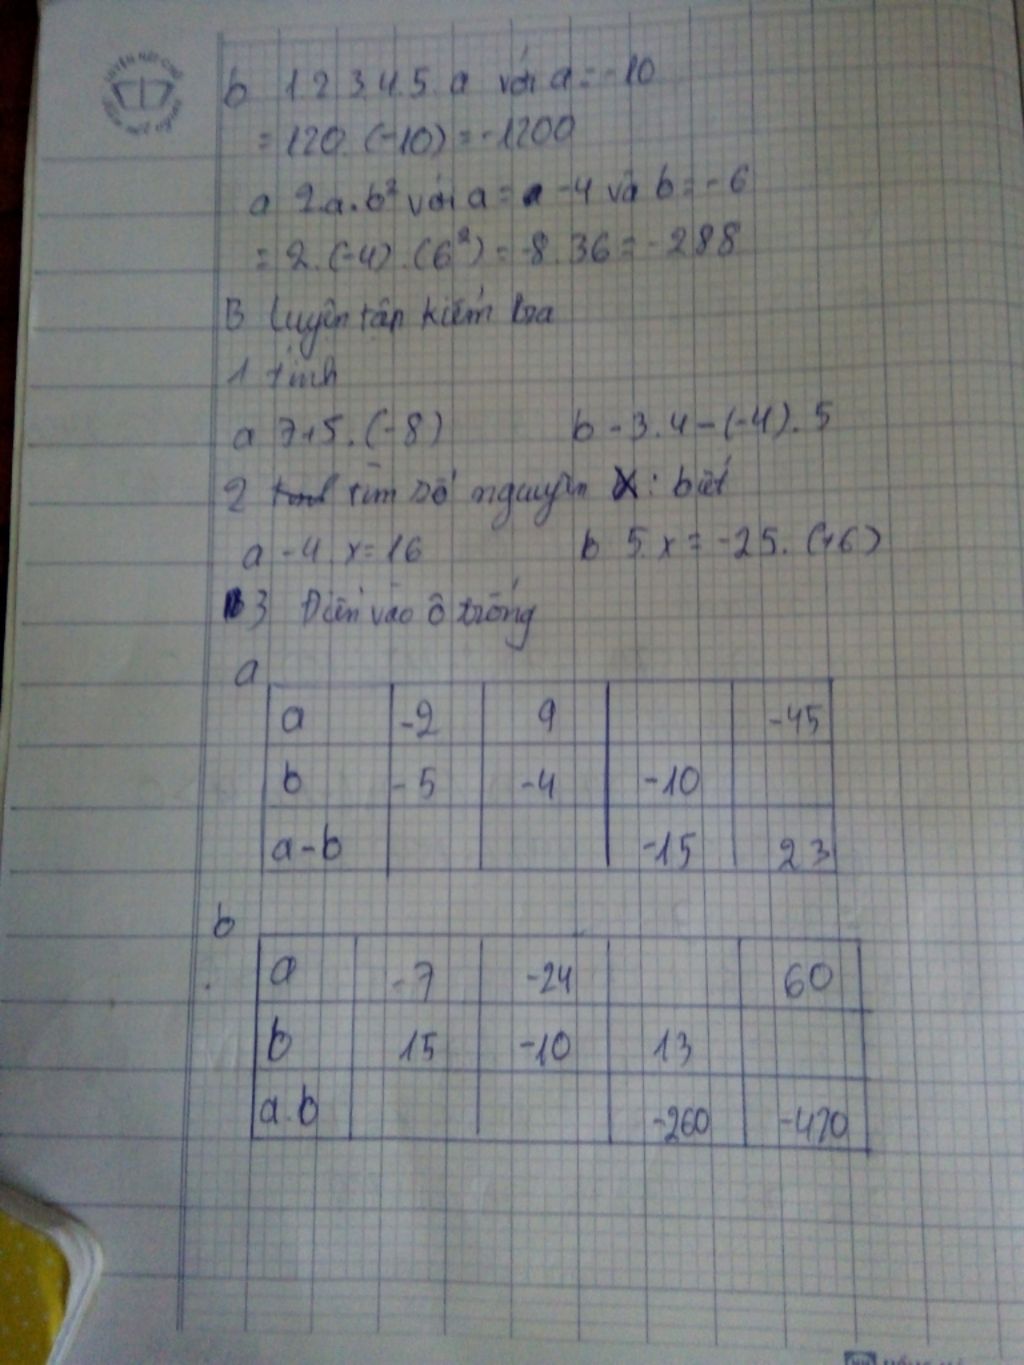 b 1.2.3.4.5.a với a = -10
= 120.(-10) = -1200
a 2.a.b² với a = -4 và b = -6
= 2.(-4).(6²) = -8.36 = -288
B Luyện tập kiểm tra
1 tính
a 7+5.(-8) b -3.4-(-4).5
2 tìm số nguyên x: biết
a -4.x=16 b 5.x = -25.(+6)
3 Điền vào ô trống
a
a -2 9 -45
b -5 -4 -10
a-b -15 23
b
a -7 -24 60
b 15 -10 13
a.b -260 -420